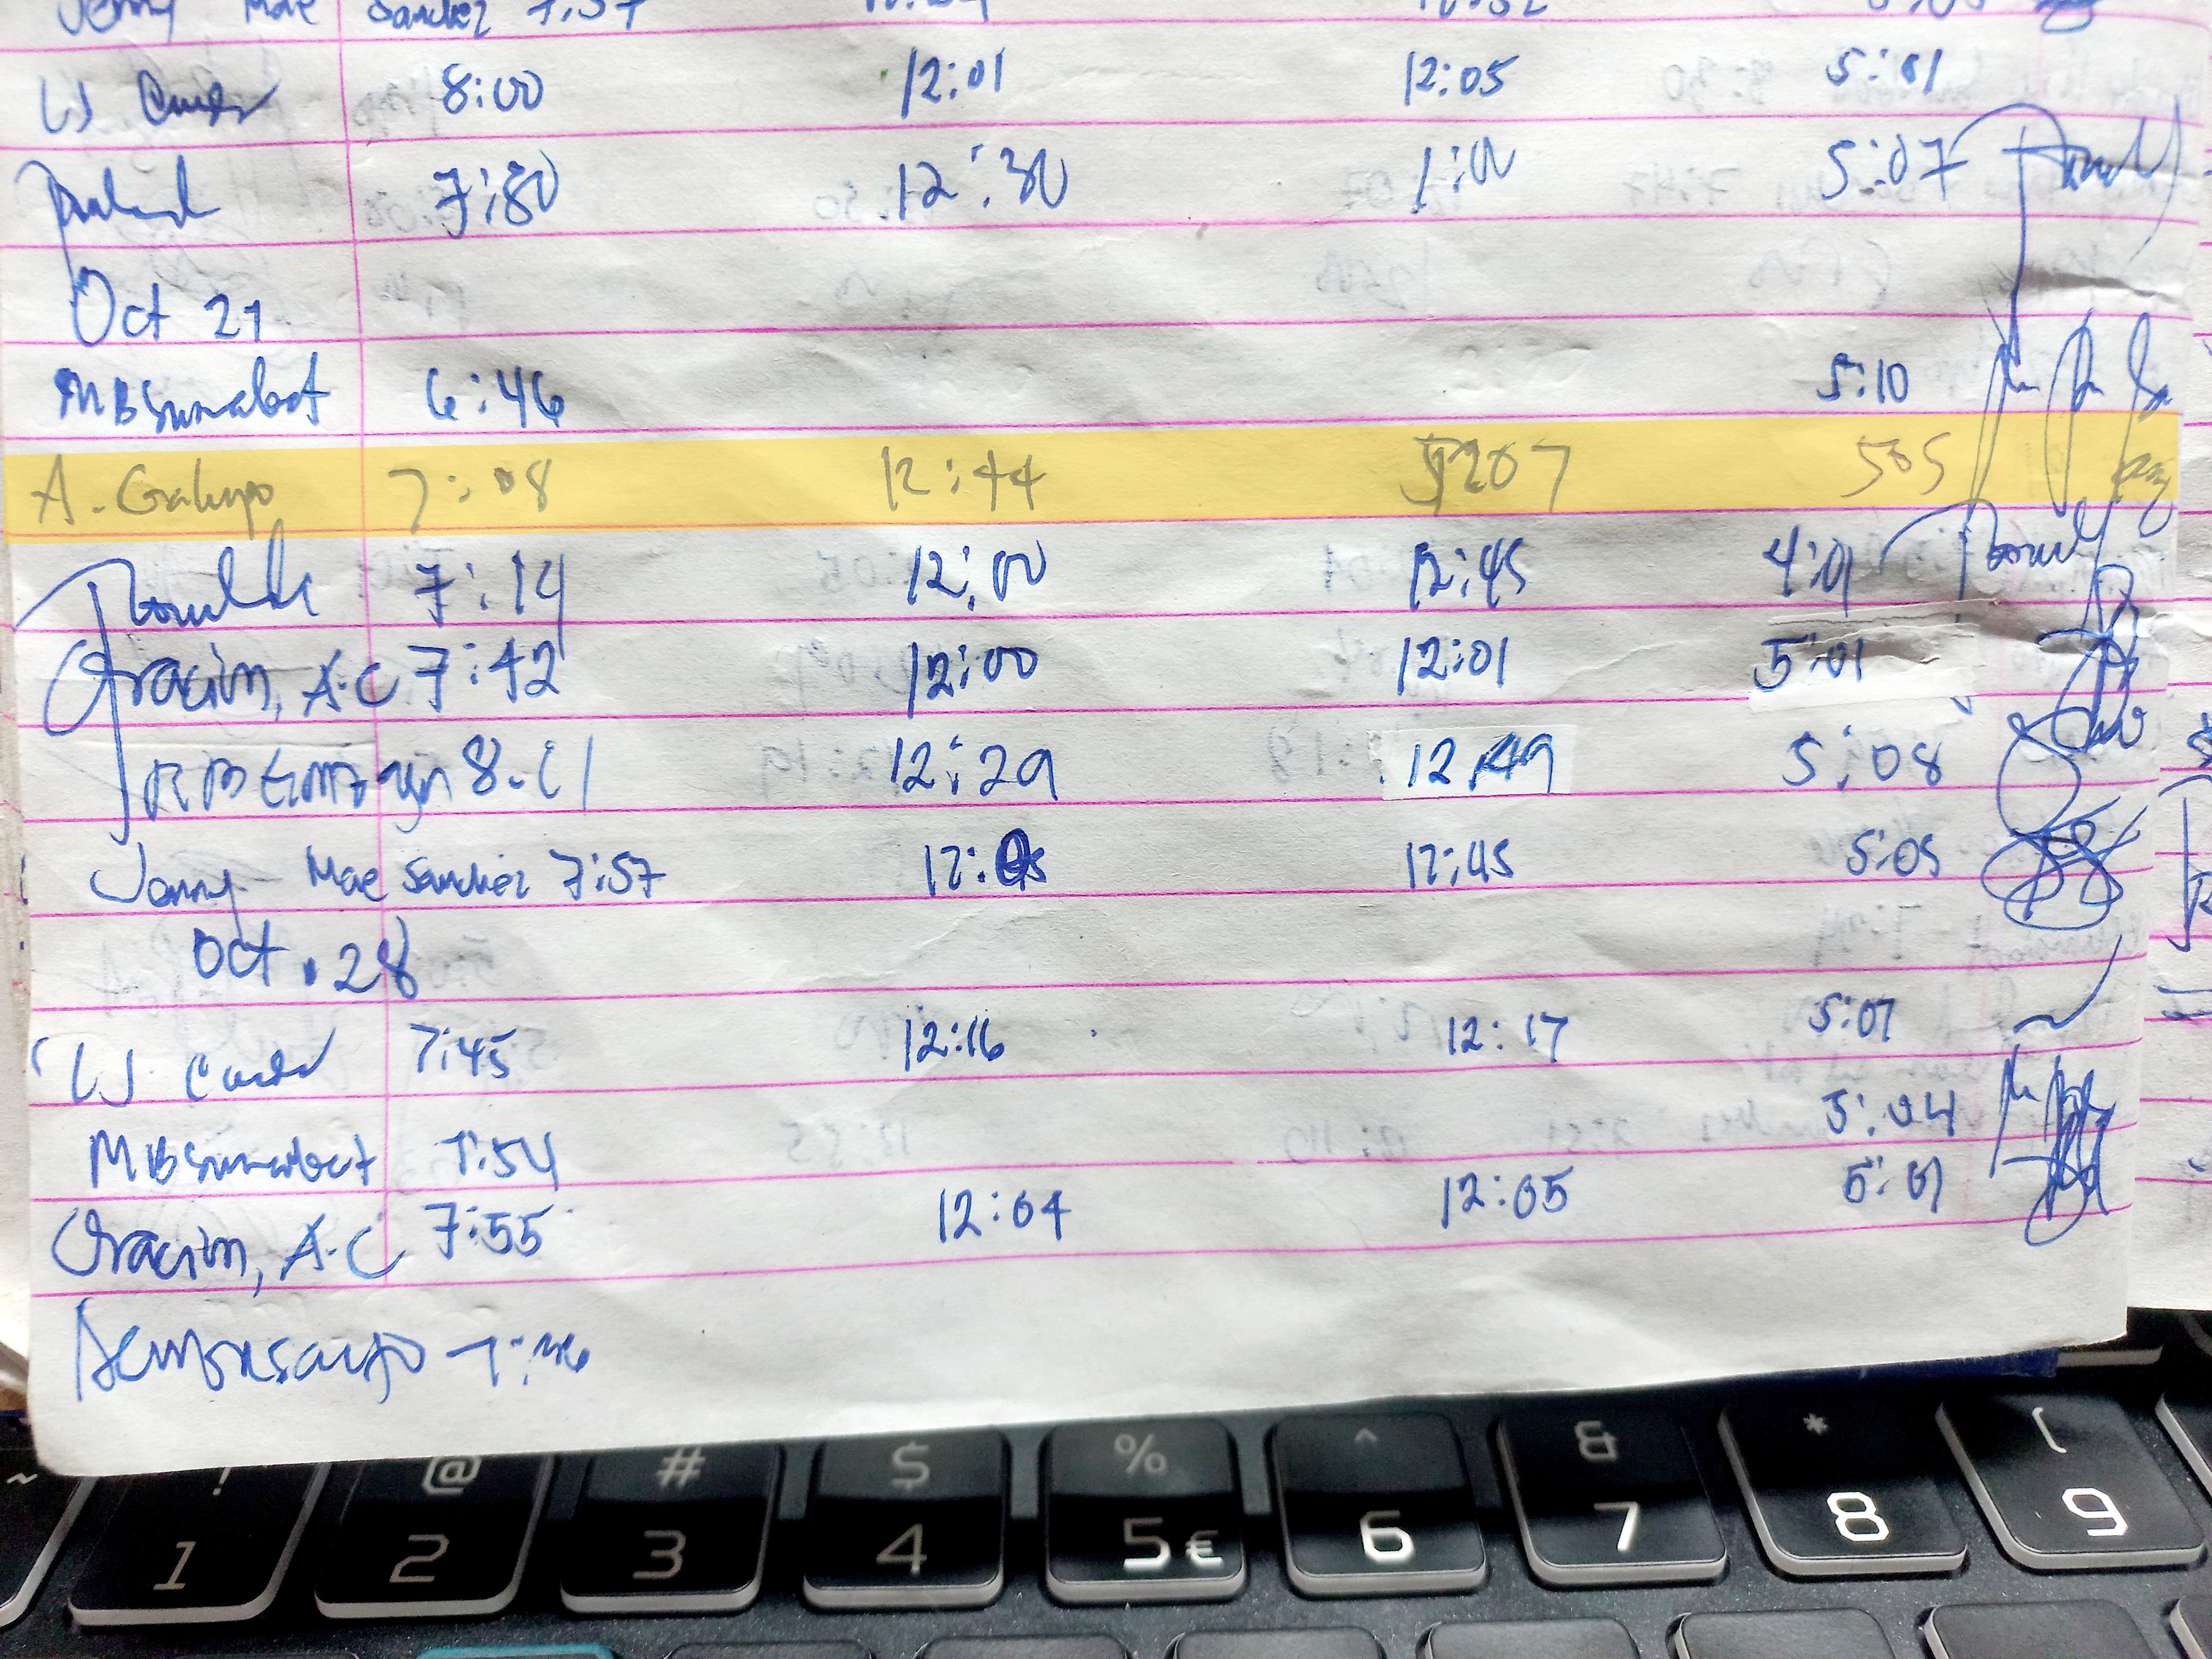 Jenny Mae Sanchez 7:57
LJ 8:00 12:01 12:05 5:01
7:80 12:30 1:00 5:07
Oct 27
MBSumabat 6:46 5:10
A. Galupo 7:08 12:44 505
7:14 12:00 12:45 4:01
Oracion, A.C 7:42 12:00 12:01 5:01
12:29 12:49 5:08
Jenny Mae Sanchez 7:57 12:05 12:45 5:05
Oct. 28
LJ 7:45 12:16 12:17 5:07
MBSumabat 7:54 5:04
Oracion, A.C 7:55 12:04 12:05 5:01
~ ! @ # $ % ^ & * (
1 2 3 4 5 € 6 7 8 9